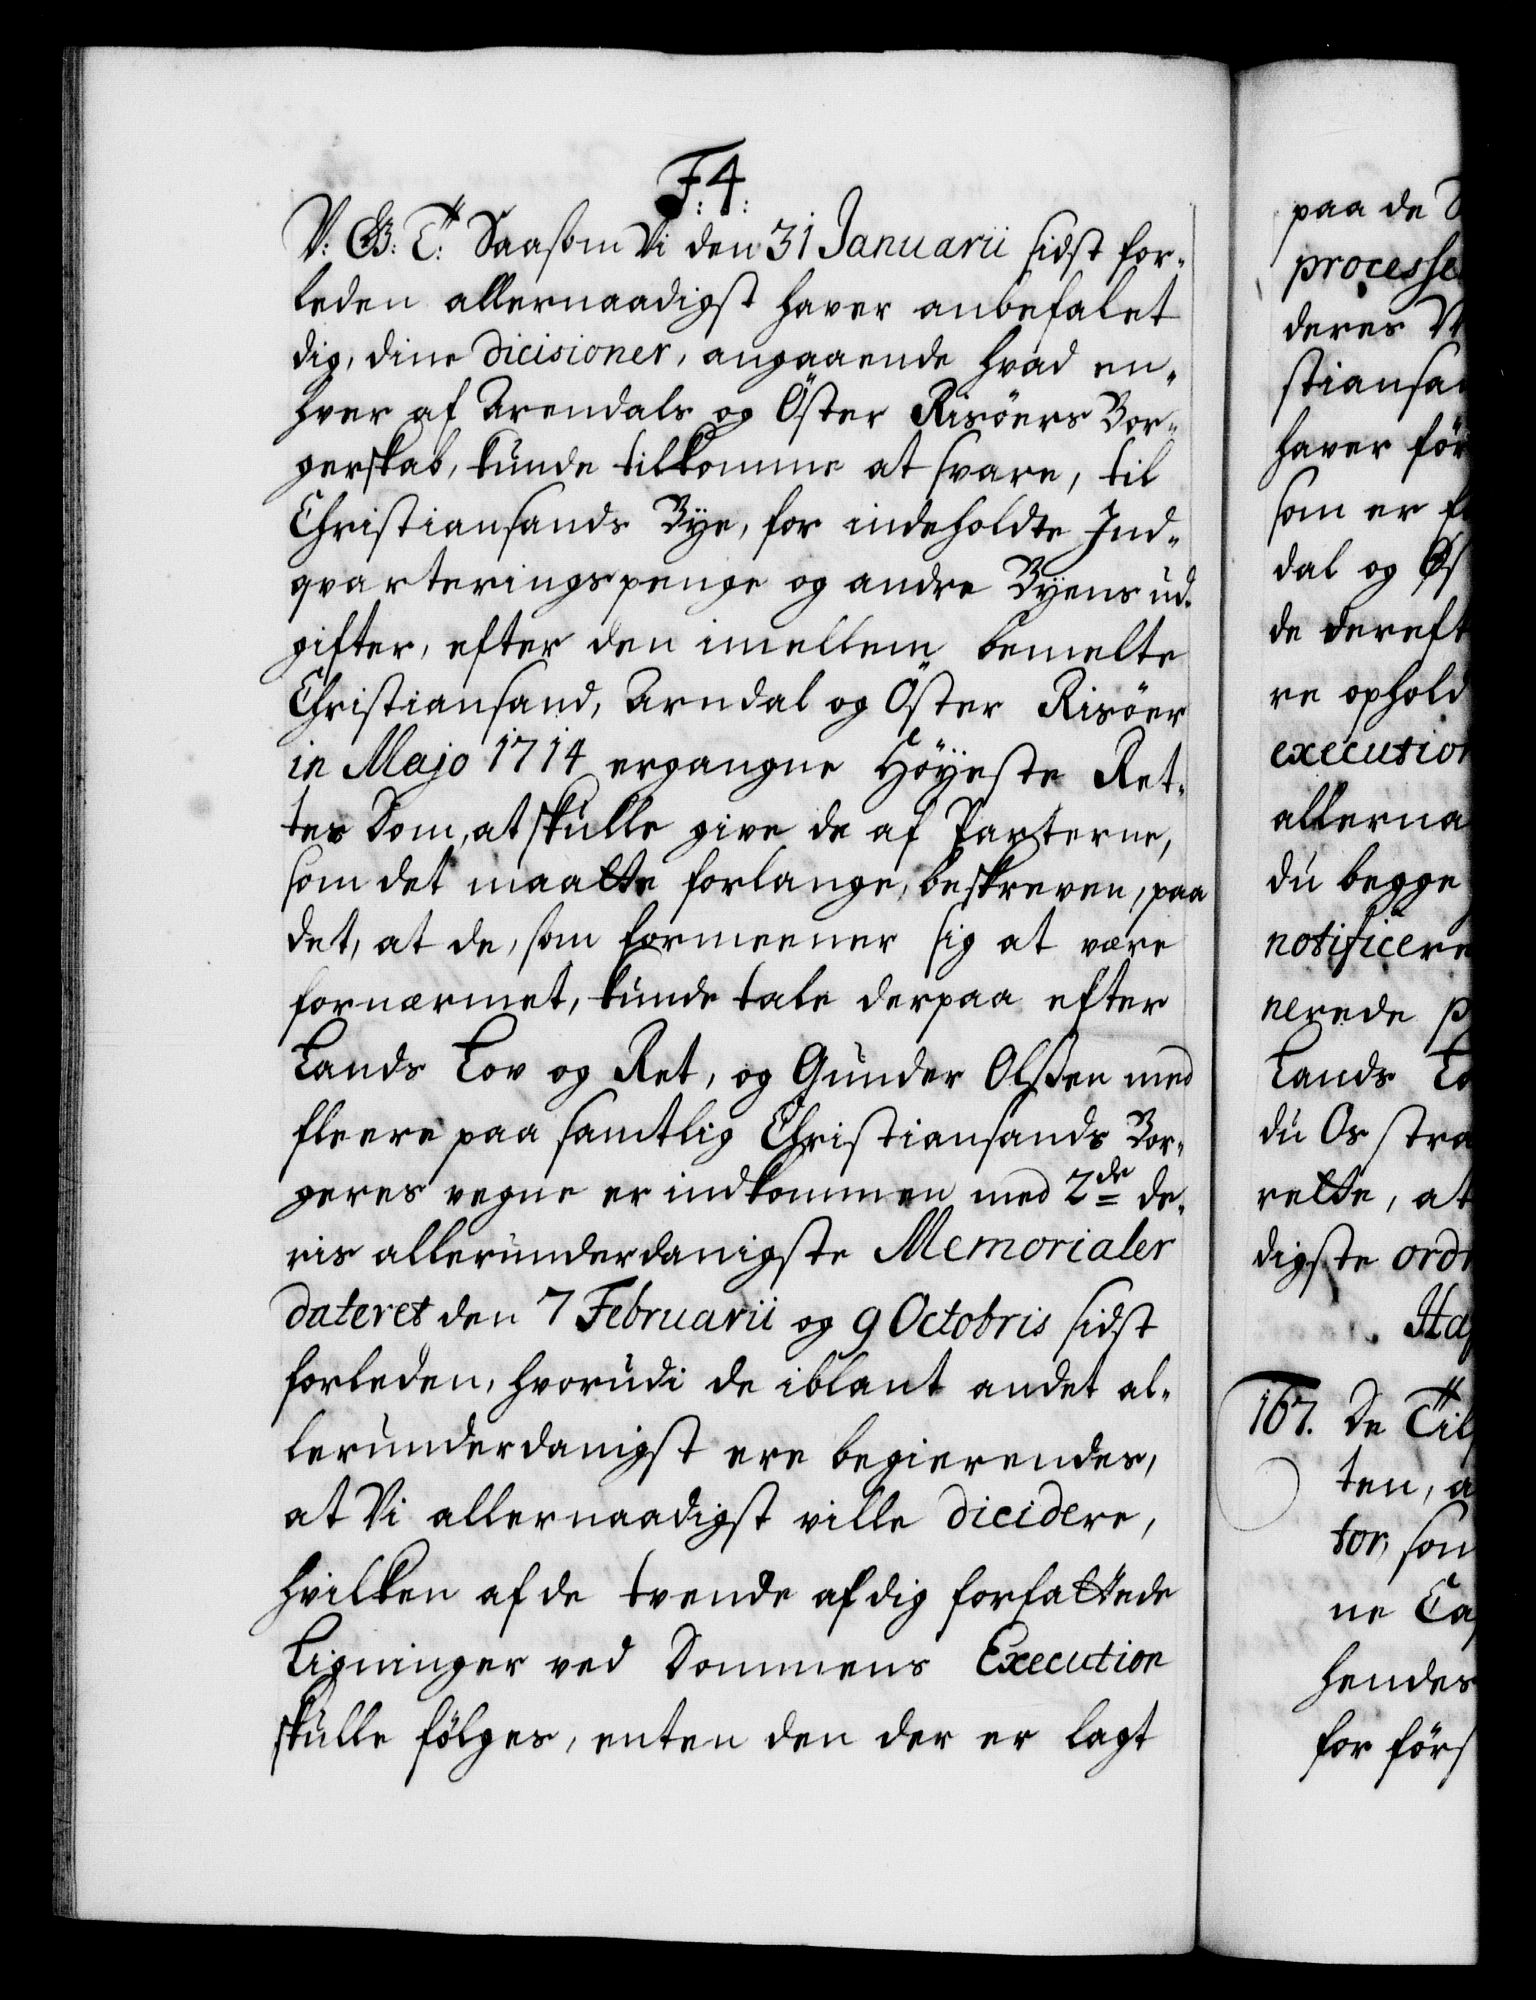 F: 4.
V: G: T: Saasom Vi den 31 Januarii sidst for-
leden allernaadigst haver anbefalet
dig, dine Dicisioner, angaaende hvad en-
hver af Arendals og Öster Risöers Bor-
gerskab, kunde tilkomme at svare, til
Christiansands Bye, for indeholdte Ind-
qvarteringspenge og andre Byens ud-
gifter, efter den imellem bemelte
Christiansand, Arndal og Öster Risöer
in Majo 1714 ergangne Höyeste Ret-
tes Dom, at skulle give de af Parterne,
som det maatte forlange, beskreven, paa
det, at de, som formeener sig at være
fornærmet, kunde tale derpaa efter
Lands Lov og Ret, og Gunder Olßen med
fleere paa samtlig Christiansands Bor-
geres vegne er indkommen med 2de de-
ris allerunderdanigste Memorialer
dateret den 7 Februarii og 9 Octobris sidst
forleden, hvorudi de iblant andet al-
lerunderdanigst ere begierendes,
at Vi allernaadigst ville dicidere,
hvilken af de tvende af dig forfattede
Ligninger ved Dommens Execution
skulle fölges, enten den der er lagt
paa de
processe
deres
stiansa
haver för
som er
dal og
de dereft
re ophold
execution
allerna
du begge
notificere
nerede
Lands
du Os
rette, at
digste ord
167. De Til
ten, a
tor, som
ne Ca
hendes
for förs